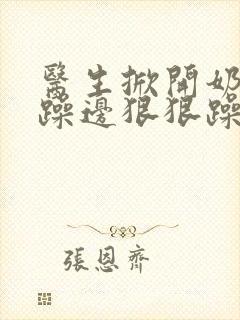 醫生掀開奶
躁邊狠狠躁
張恩齊